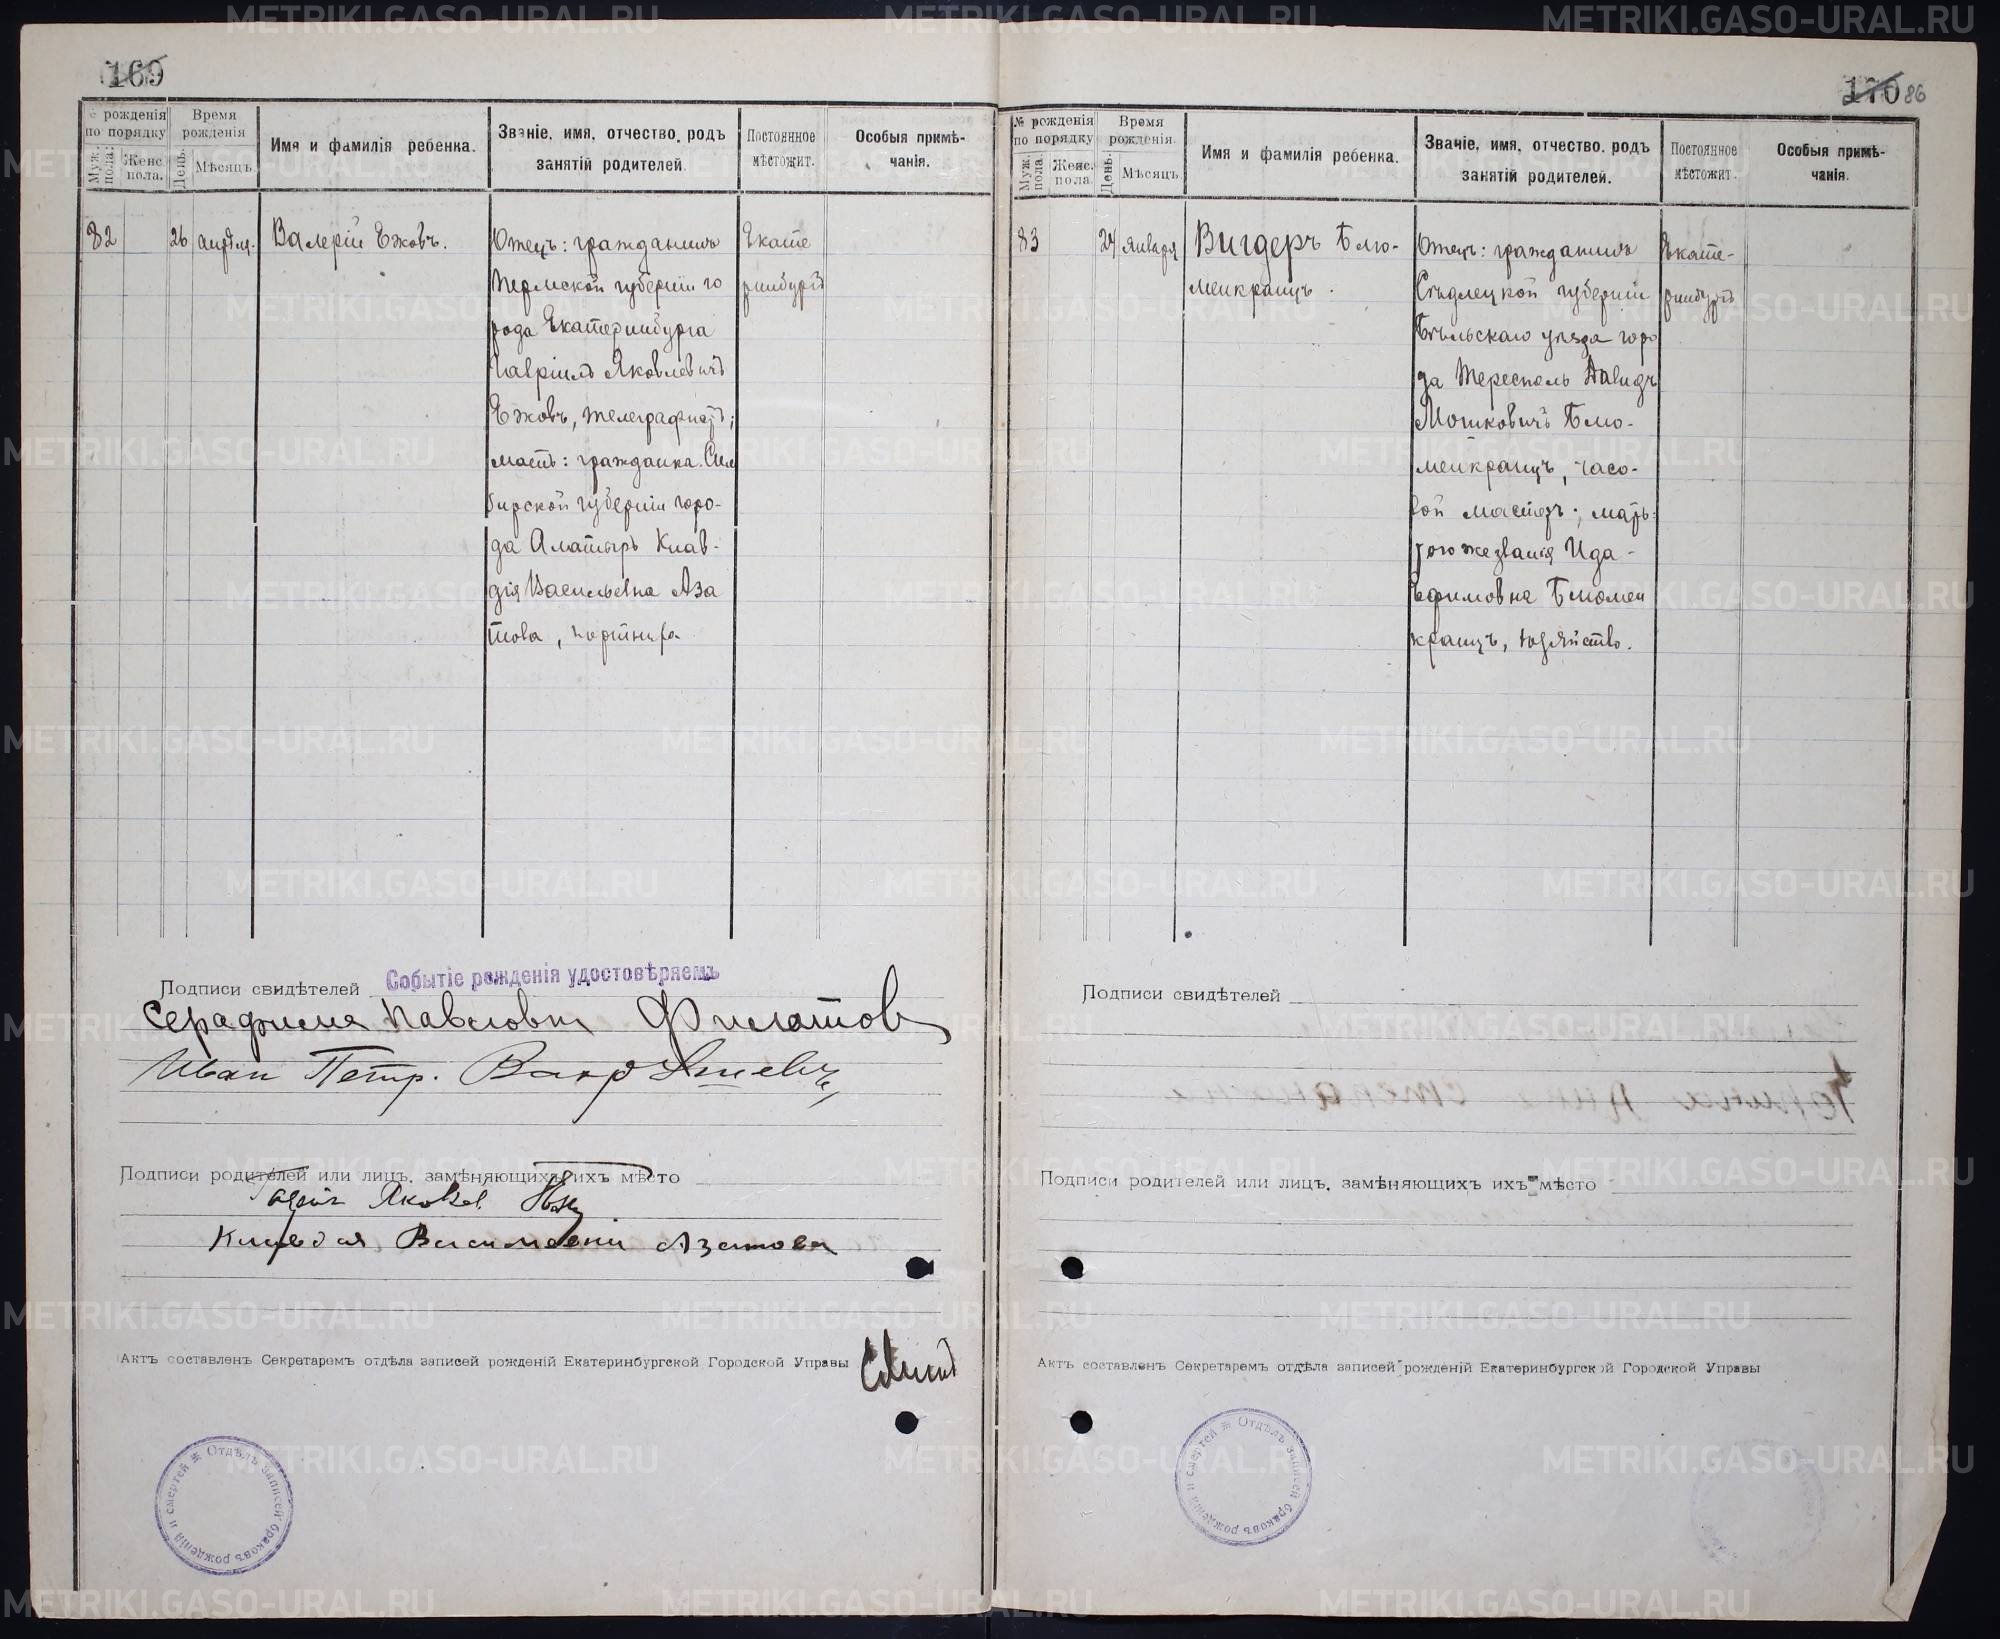 169
№ рожденія по порядку
Муж. пола.
Женс. пола.
Время рожденія
День.
Мѣсяцъ.
Имя и фамилія ребенка.
Званіе, имя, отчество, родъ
занятій родителей.
Постоянное
мѣстожит.
Особыя примѣ-
чанія.
82
26
апрѣля.
Валерій Ежовъ.
Отецъ: гражданинъ
Пермской губерніи го
рода Екатеринбурга
Гавріилъ Яковлевичъ
Ежовъ, телеграфистъ;
мать: гражданка Сим
бирской губерніи горо-
да Алатырь Клав-
дія Васильевна Аза
това, портниха
Екате
ринбургъ
Подписи свидѣтелей
Событіе рожденія удостовѣряемъ
Серафима Павловна Филатов
Иван Петр.
Подписи родителей или лицъ, замѣняющихъ ихъ мѣсто
Яковл.
Клавдия Васильевна Азатова
Актъ составленъ Секретаремъ отдѣла записей рожденій Екатеринбургской Городской Управы
Отдѣлъ записей браковъ рожденій и смертей
170 86
№ рожденія по порядку
Муж. пола.
Женс. пола.
Время рожденія.
День.
Мѣсяцъ.
Имя и фамилія ребенка.
Званіе, имя, отчество, родъ
занятій родителей.
Постоянное
мѣстожит.
Особыя примѣ-
чанія.
83
24
января
Вигдеръ Блю-
менкранцъ.
Отецъ: гражданинъ
Сѣдлецкой губерніи
Бѣльскаго уѣзда горо
да Тересполь Давидъ
Мошковичъ Блю-
менкранцъ, часо-
вой мастеръ; мать:
того же званія Ида
Ефимовна Блюмен
кранцъ, хозяйство.
Екате-
ринбургъ
Подписи свидѣтелей
Подписи родителей или лицъ, замѣняющихъ ихъ мѣсто
Актъ составленъ Секретаремъ отдѣла записей рожденій Екатеринбургской Городской Управы
Отдѣлъ записей браковъ рожденій и смертей
METRIKI.GASO-URAL.RU